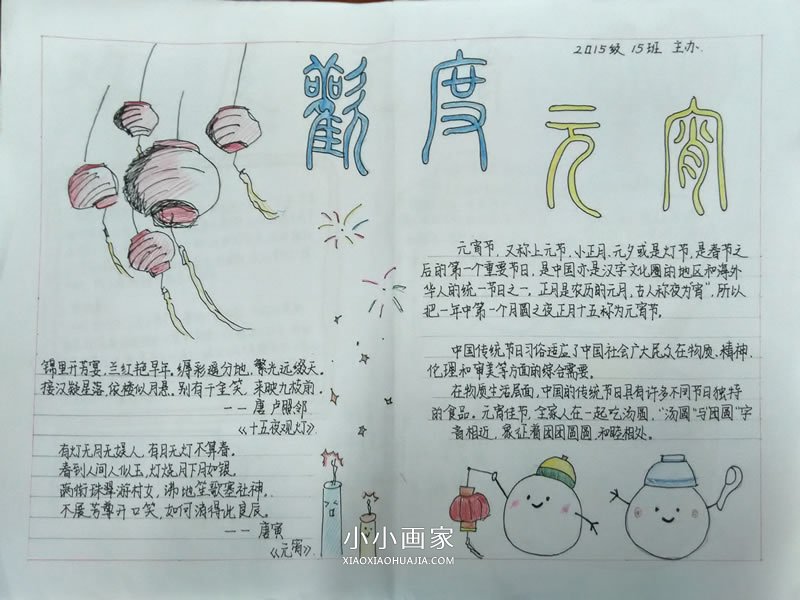 2015级 15班 主办
觀度元宵
元宵节,又称上元节,小正月、元夕或是灯节,是春节之
后的第一个重要节日,是中国亦是汉字文化圈的地区和海外
华人的统一节日之一。正月是农历的元月,古人称夜为“宵”,所以
把一年中第一个月圆之夜正月十五称为元宵节。
中国传统节日习俗适应了中国社会广大民众在物质、精神、
伦理和审美等方面的综合需要。
在物质生活层面,中国的传统节日具有许多不同节日独特
的食品。元宵佳节,全家人在一起吃汤圆,“汤圆”与“团圆”字
音相近,象征着团团圆圆,和睦相处。
锦里开芳宴,兰红艳早年。缛彩遥分地,繁光远缀天。
接汉疑星落,依楼似月悬。别有千金笑,来映九枝前。
——唐 卢照邻
《十五夜观灯》
有灯无月无娱人,有月无灯不算春。
春到人间人似玉,灯烧月下月如银。
满街珠翠游村女,沸地笙歌赛社神。
不展芳尊开口笑,如何消得此良辰。
——唐寅
《元宵》
小小画家
XIAOXIAOHUAJIA.COM